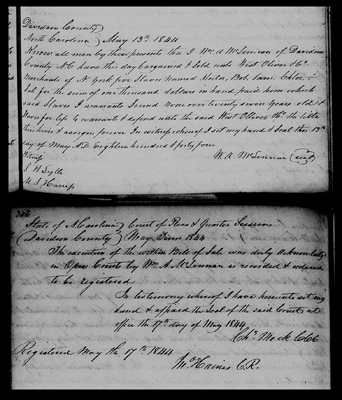 Davidson County
North Carolina } May 13th 1844
Know all man by these presents tha I Wm. A McLennan of Davidson
County N C have this day bargained & sold unto West Oliver &Co
Merchants of N York five Slaves Named Huler, Bob, Sam. Chloe &
for the sum of one thousand dollars in hand paid here which
said Slaves I warrants Sound None over twenty seven years old &
Slaves for life to warrant & defend unto the said West Oliver &Co the title
their heirs & assigns forever In witness whereof I set my hand & Seal this 13th
day of May AD Eighteen hundred & forty four
W. A. McLennan (seal)
228
State of N Carolina } Court of Pleas & Quarter Sessions
Davidson County } May Term 1844
The execution of the within Bill of Sale was duly acknowledged
in Open Court by Wm A McLennan is recorded & ordered
to be registered
In testimony whereof I have hereunto set my
hand & affixed the seal of the said Court at
office the 17th day of May 1844
Chs. Mock Clk
Registered May the 17th 1844
Wm Haines C.R.